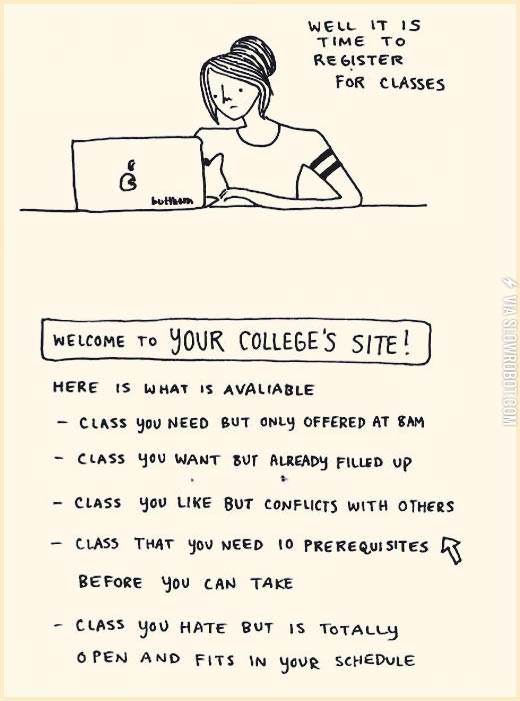 WELL IT IS
TIME TO
REGISTER
FOR CLASSES
butthorn
WELCOME TO YOUR COLLEGE'S SITE!
HERE IS WHAT IS AVALIABLE
- CLASS YOU NEED BUT ONLY OFFERED AT 8AM
- CLASS YOU WANT BUT ALREADY FILLED UP
- CLASS YOU LIKE BUT CONFLICTS WITH OTHERS
- CLASS THAT YOU NEED 10 PREREQUISITES
BEFORE YOU CAN TAKE
- CLASS YOU HATE BUT IS TOTALLY
OPEN AND FITS IN YOUR SCHEDULE
VIA SLOWROBOT.COM